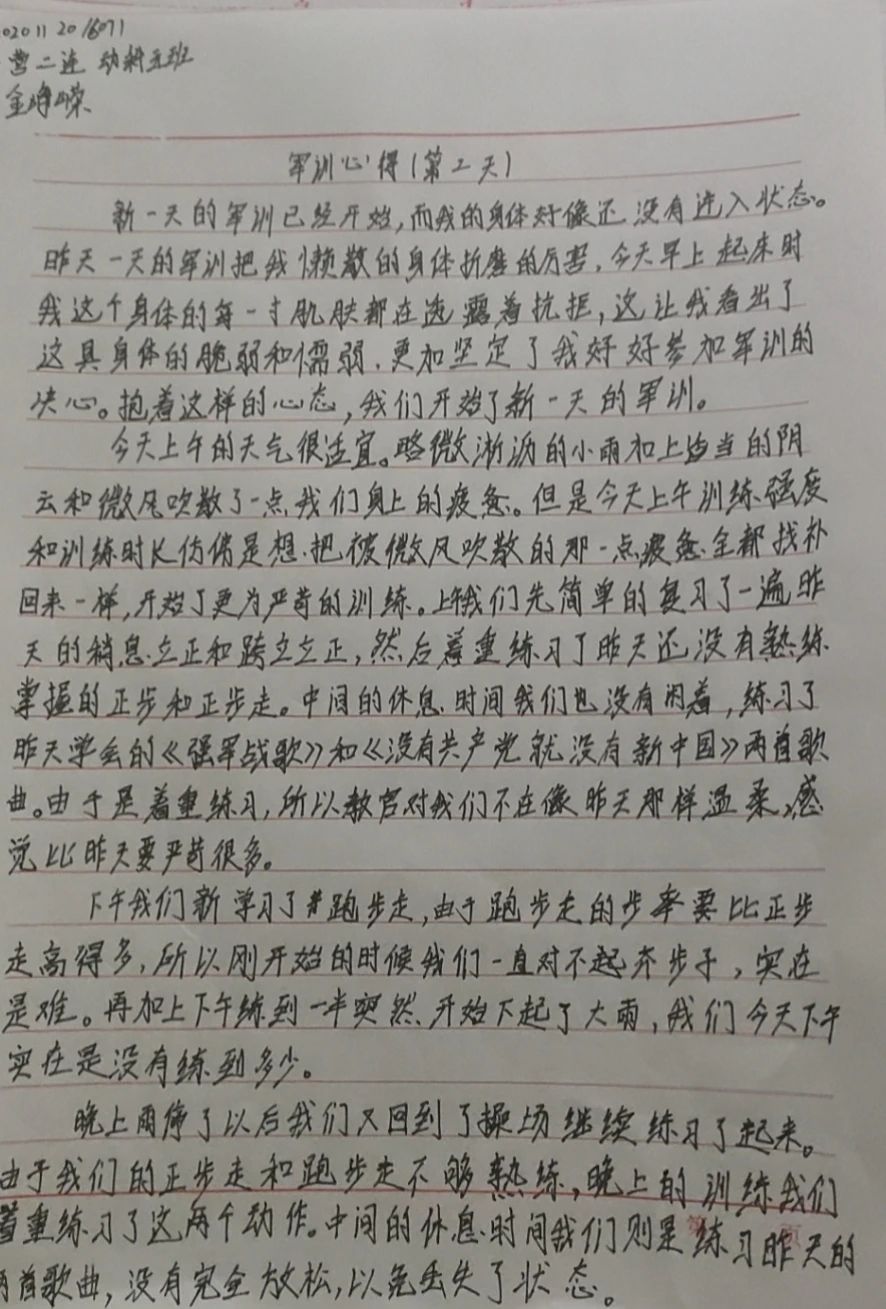 02011 20 16071
营二连 动科五班
金峥嵘
军训心得(第二天)
新一天的军训已经开始,而我的身体好像还没有进入状态。
昨天一天的军训把我懒散的身体折磨的厉害,今天早上起床时
我这个身体的每一寸肌肤都在透露着抗拒,这让我看出了
这具身体的脆弱和懦弱,更加坚定了我好好参加军训的
决心。抱着这样的心态,我们开始了新一天的军训。
今天上午的天气很适宜。略微淅沥的小雨加上适当的阴
云和微风吹散了一点我们身上的疲惫。但是今天上午训练强度
和训练时长仿佛是想把被微风吹散的那一点疲惫全都找补
回来一样,开始了更为严苛的训练。上午我们先简单的复习了一遍昨
天的稍息立正和跨立立正,然后着重练习了昨天还没有熟练
掌握的正步和正步走。中间的休息时间我们也没有闲着,练习了
昨天学会的《强军战歌》和《没有共产党就没有新中国》两首歌
曲。由于是着重练习,所以教官对我们不在像昨天那样温柔,感
觉比昨天要严苛很多。
下午我们新学习了跑步走,由于跑步走的步率要比正步
走高得多,所以刚开始的时候我们一直对不起齐步子,实在
是难。再加上下午练到一半突然开始下起了大雨,我们今天下午
实在是没有练到多少。
晚上雨停了以后我们又回到了操场继续练习了起来。
由于我们的正步走和跑步走不够熟练,晚上的训练我们
着重练习了这两个动作。中间的休息时间我们则是练习昨天的
两首歌曲,没有完全放松,以免丢失了状态。